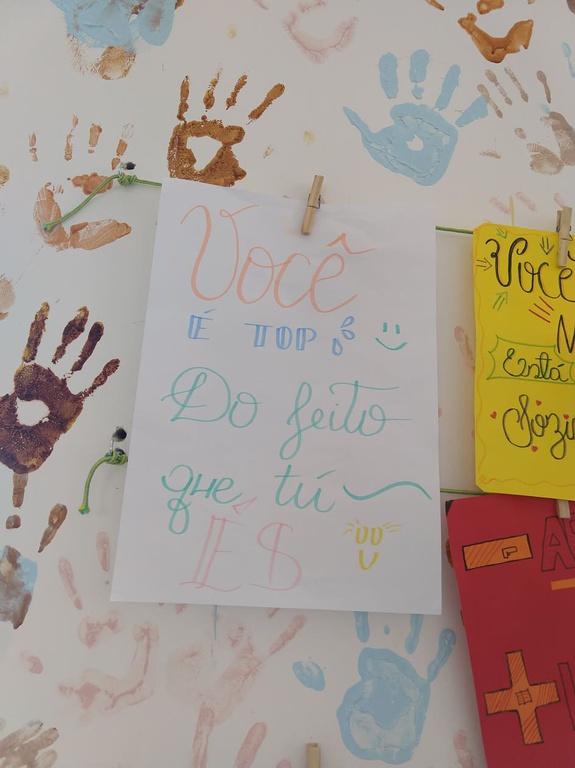 Você
É TOP
Do jeito
que tú
ÉS
Você
Está